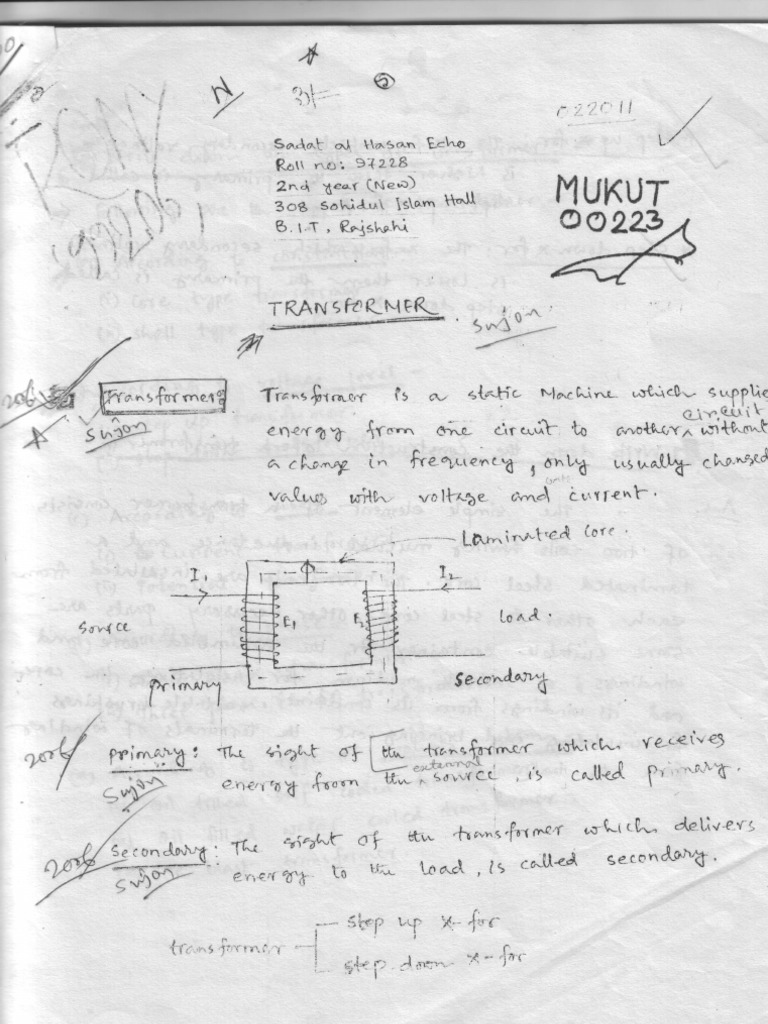 5
N
3/=
022011
Sadat al Hasan Echo
Roll no: 97228
2nd year (New)
308 Sohidul Islam Hall
B.I.T, Rajshahi
MUKUT
00223
TRANSFORMER
Sujon
2006
Transformer:
Sujon
Transformer is a static Machine which supplie
energy from one circuit to another circuit without
a change in frequency, only usually changed
values with voltage and current.
Laminated Core.
Φ
I1
I2
E1
E2
source
load.
primary
secondary
2006
primary: The sight of the transformer which receives
Sujon
energy from the external source, is called primary.
2006
secondary: The sight of the transformer which delivers
Sujon
energy to the load, is called secondary.
transformer
step up x-for
step down x-for